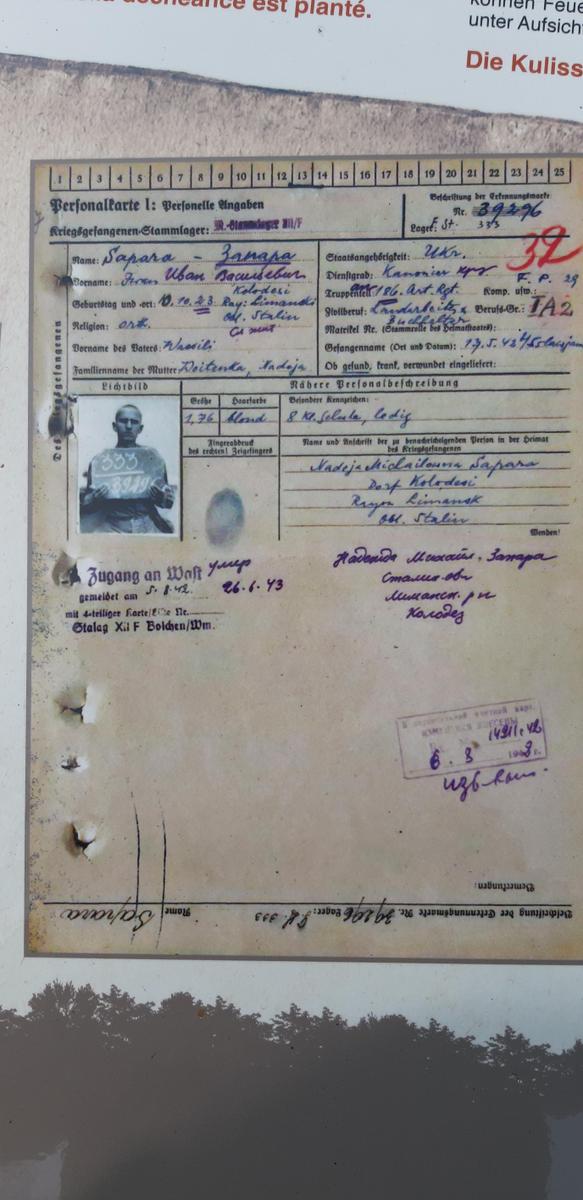 déchéance est planté.
können Feue
unter Aufsich
Die Kuliss
1 2 3 4 5 6 7 8 9 10 11 12 13 14 15 16 17 18 19 20 21 22 23 24 25
Personalkarte I: Personelle Angaben
Kriegsgefangenen-Stammlager: M.-Stammlager XII/F
Beschriftung der Erkennungsmarke
Nr. 39296
Lager: F. St. 333
32
Des Kriegsgefangenen
Name: Sapara - Запара
Vorname: Иван Васильевич
Geburtstag und -ort: 10.10.23 Kolodesi
Ray: Limanski
Obl. Stalin
Religion: orth.
Vorname des Vaters: Wassili
Familienname der Mutter: Nadeja
Staatsangehörigkeit: Ukr.
Dienstgrad: Kanonier
Truppenteil: 186. Art. Rgt. Komp. usw.:
Zivilberuf: Landarbeiter Berufs-Gr.: IA2
Buchhalter
Matrikel Nr. (Stammrolle des Heimatstaates):
Gefangennahme (Ort und Datum): 17.5.42
Ob gesund, krank, verwundet eingeliefert:
Lichtbild
333
39296
Größe Haarfarbe
1,76 blond
Fingerabdruck
des rechten! Zeigefingers
Nähere Personalbeschreibung
Besondere Kennzeichen:
8 Kl. Schule, ledig
Name und Anschrift der zu benachrichtigenden Person in der Heimat
des Kriegsgefangenen
Nadeja Michailowna Sapara
Dorf Kolodesi
Rayon Limansk
Obl. Stalin
Wenden!
Zugang an Wast умер
gemeldet am 5.8.42. 26.6.43
mit 4-teiliger Karte/Liste Nr.
Stalag XII F Bolchen/Wm.
Надежда Михайл. Запара
Сталин обл
Лиманск. р-н
Колодез
6. 3
Bemerkungen:
Beschriftung der Erkennungsmarke Nr. 39296 Lager: St. 333 Name Sapara